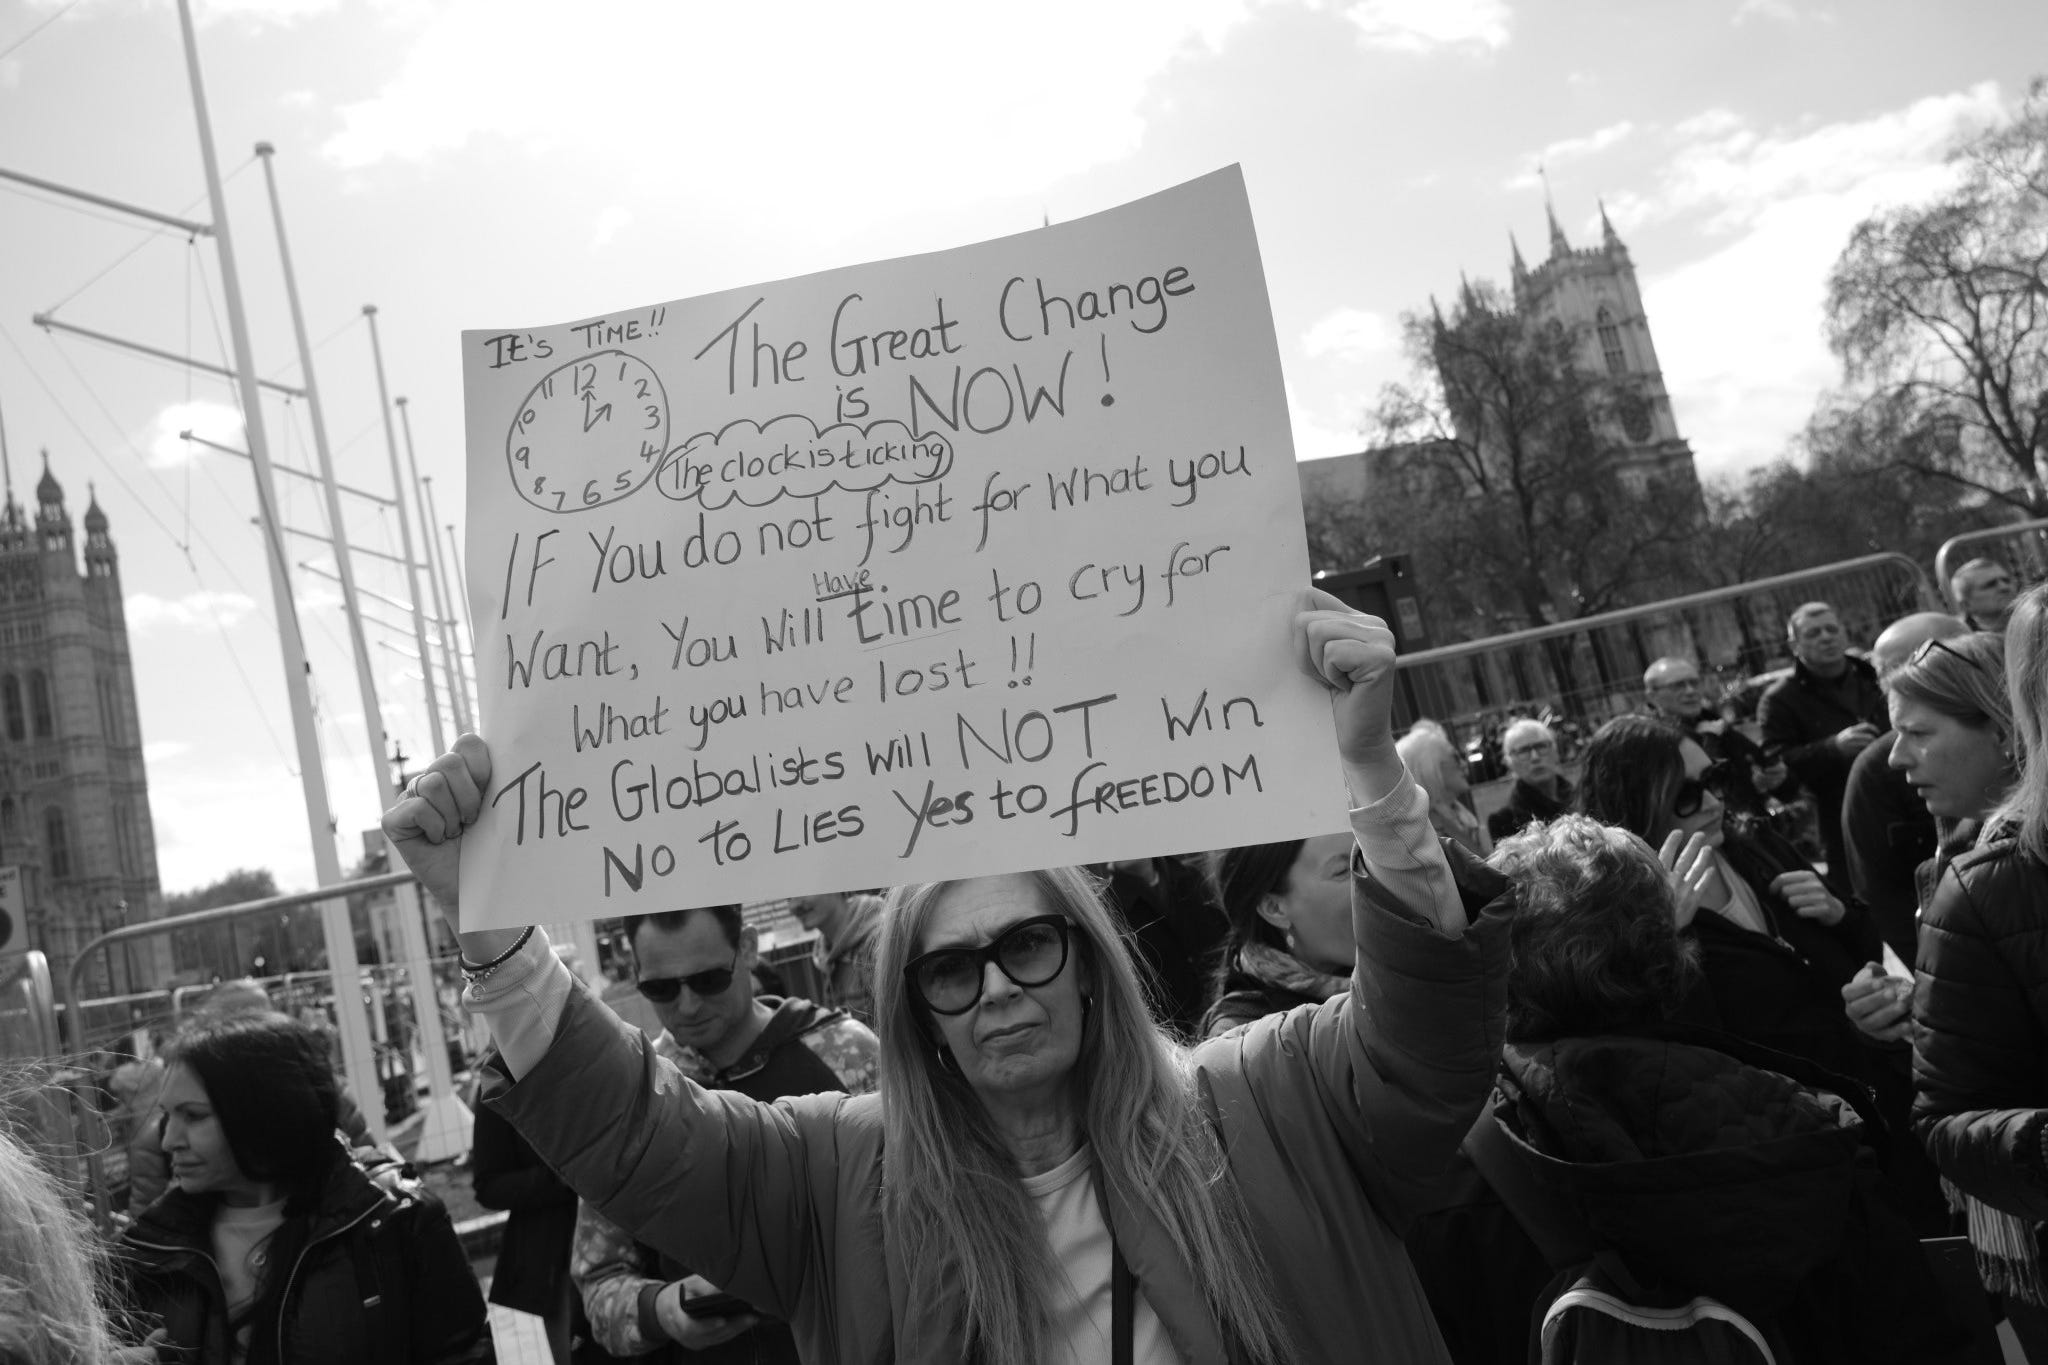 It's TIME!!
The Great Change
is NOW!
11 12 1
10 2
9 3
8 4
7 6 5
The clock is ticking
IF You do not fight for What you
Have
Want, You Will time to cry for
What you have lost !!
The Globalists will NOT Win
No to LIES Yes to fREEDOM